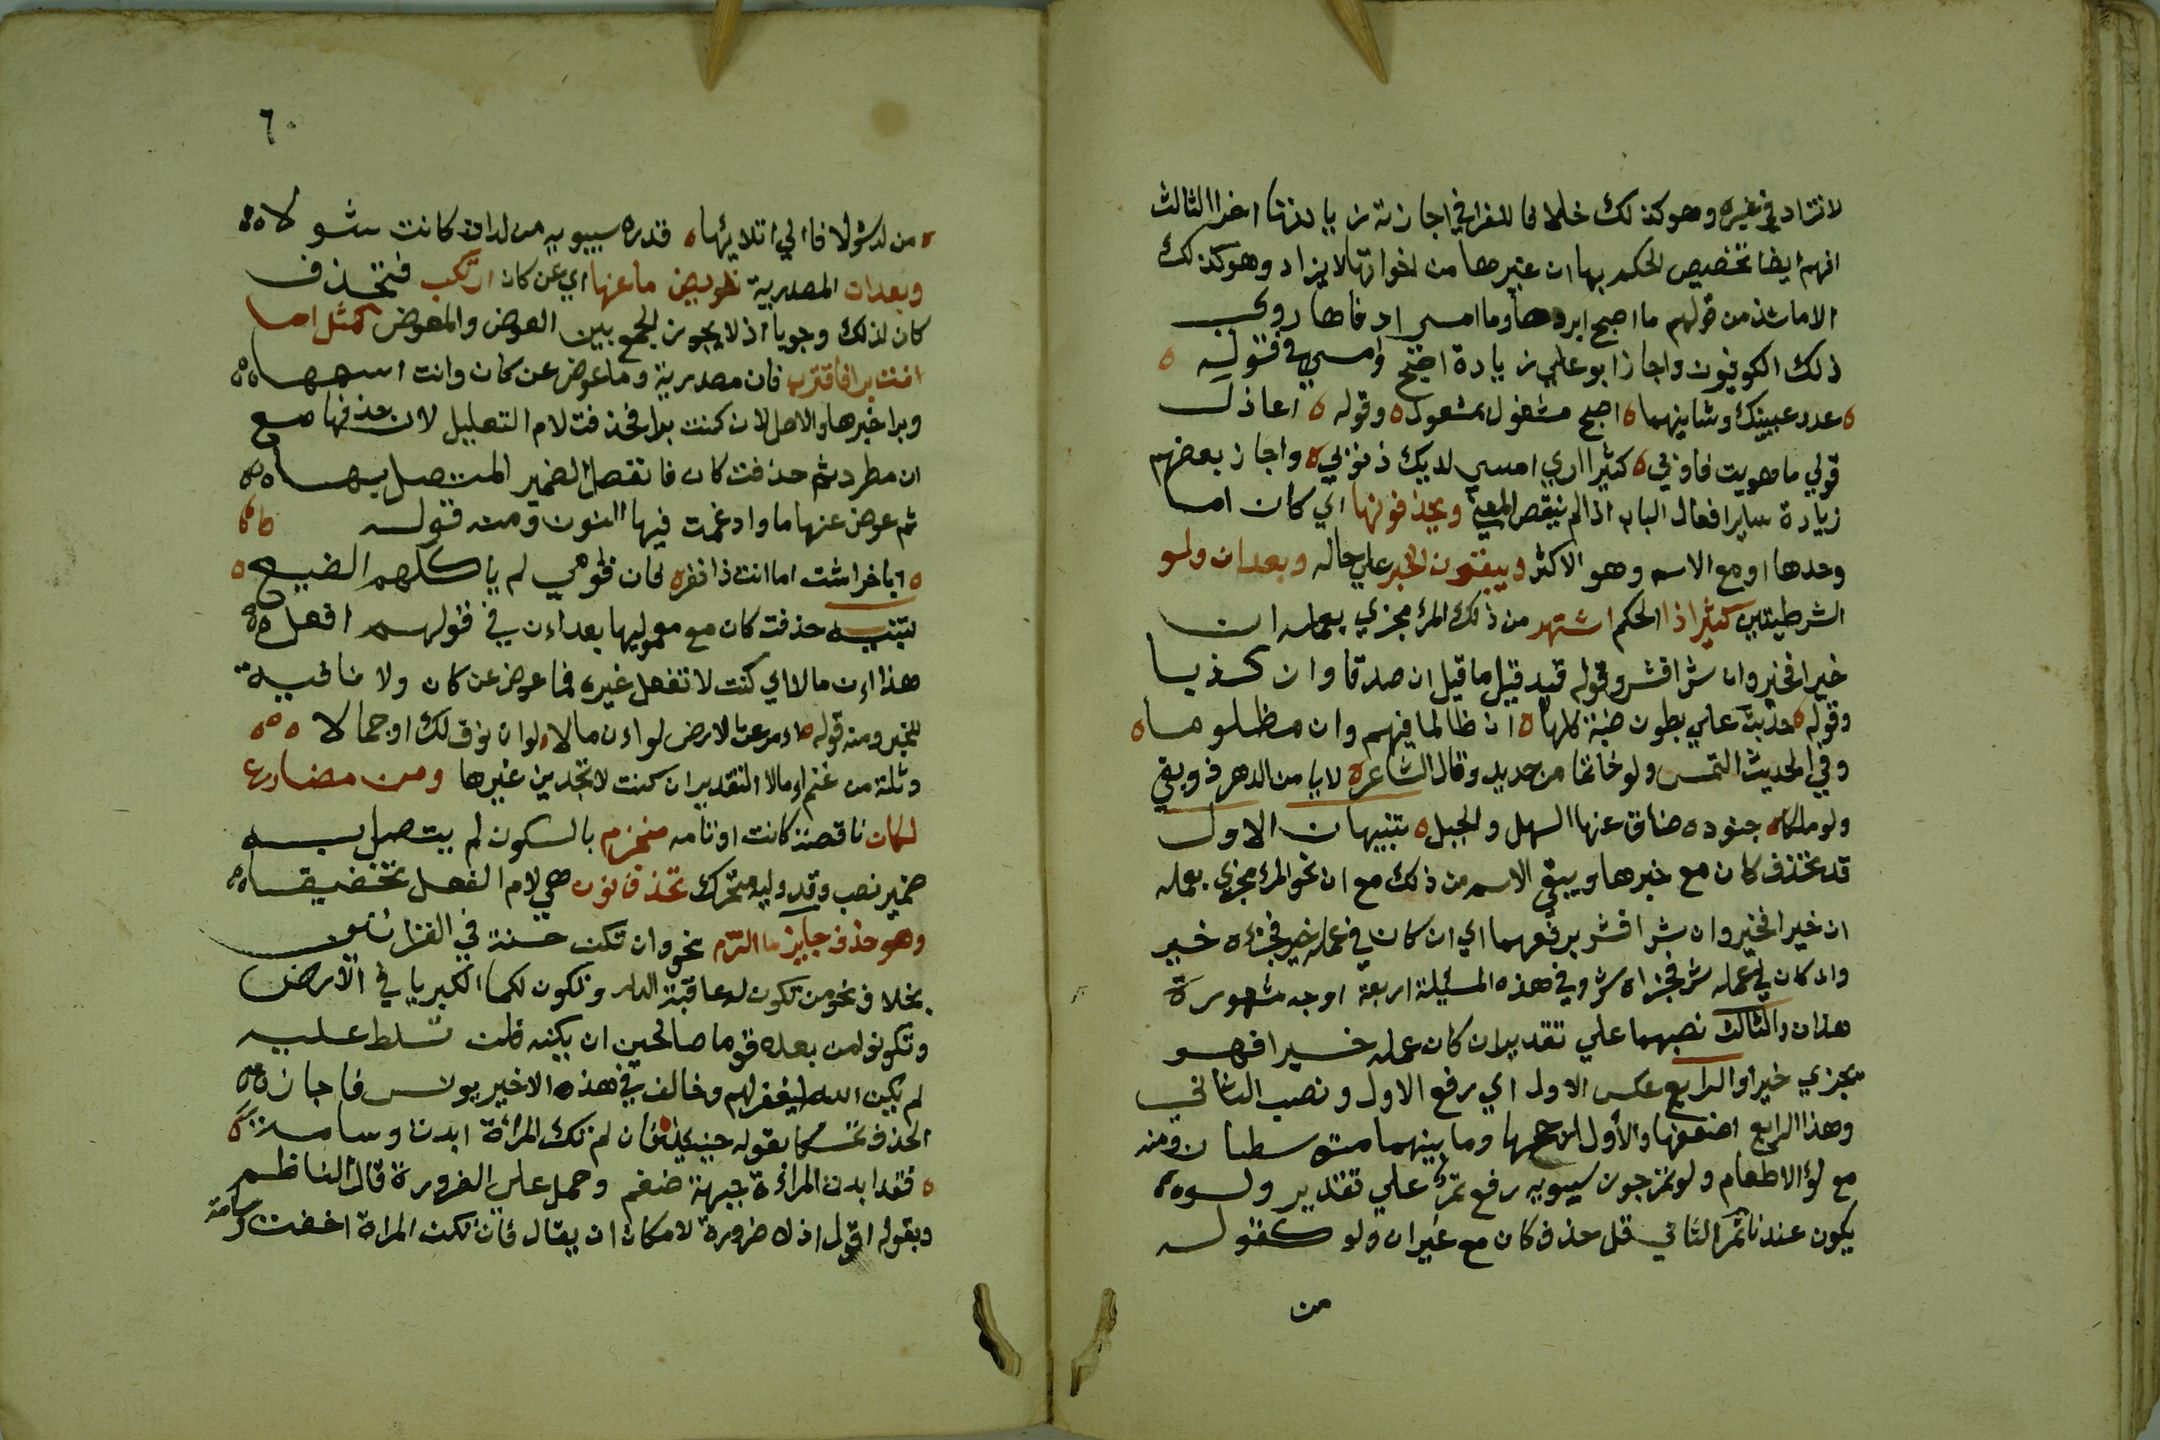 لا تزاد في غيره وهو كذلك خلافا للفرا في اجازته زيادتها اخرا الثالث
افهم ايضا تخصيص الحكم بها ان غيرها من اخواتها لا يزاد وهو كذلك
الا ما شذ من قولهم ما اصبح ابردها وما امسى ادفاها روى
ذلك الكوفيون واجاز ابو علي زيادة اصبح وامسى في قوله ه
ه عدو عينيك وشانيهما ه اصبح مشغول بمشغول ه وقوله ه اعاذل
قولي ما هويت فاوبي ه كثيرا ارى امسى لديك ذنوبي ه واجاز بعضهم
زيادة ساير افعال الباب اذا لم ينقص المعنى ويحذفونها اي كان اما
وحدها او مع الاسم وهو الاكثر ويبقون الخبر على حاله وبعد ان ولو
الشرطيتين كثيرا ذا الحكم اشتهر من ذلك المرء مجزي بعمله ان
خيرا فخير وان شرا فشر وقوله قد قيل ما قيل ان صدقا وان كذبا
وقوله ه حدبت علي بطون ضبة كلها ه ان ظالما فيهم وان مظلوما ه
وفي الحديث التمس ولو خاتما من حديد وقال الشاعر ه لا يامن الدهر ذو بغي
ولو ملكا ه جنوده ضاق عنها السهل والجبل ه تنبيهان الاول
قد تحذف كان مع خبرها ويبقى الاسم من ذلك مع ان نحو المرء مجزي بعمله
ان خير فخير وان شر فشر برفعهما اي ان كان في عمله خير فجزاه خير
وان كان في عمله شر فجزاه شر وفي هذه المسئلة اربعة اوجه مشهورة
هذان والثالث نصبهما على تقدير ان كان عمله خيرا فهو
يجزي خيرا والرابع عكس الاول اي رفع الاول ونصب الثاني
وهذا الرابع اضعفها والأول ارجحها وما بينهما متوسطان ومنه
مع لو الا طعام ولو تمرا جوز سيبويه رفع تمر على تقدير ولو
يكون عندنا تمر الثاني قل حذف كان مع غير ان ولو كقوله
من
٦٠
ه من لد شولا فالى اتلائها ه قدره سيبويه من لد ان كانت شولا ه
وبعد ان المصدرية تعويض ما عنها اي عن كان ارتكب فتحذف
كان لذلك وجوبا اذ لا يجوز الجمع بين العوض والمعوض كمثل اما
انت برا فاقترب فان مصدرية وما عوض عن كان وانت اسمها
وبرا خبرها والاصل لان كنت برا فحذفت لام التعليل لان حذفها مع
ان مطرد ثم حذفت كان فانفصل الضمير المتصل بها
ثم عوض عنها ما وادغمت فيها النون ومنه قوله
ه ابا خراشة اما انت ذا نفر ه فان قومي لم ياكلهم الضبع ه
تنبيه حذفت كان مع معموليها بعد ان في قولهم افعل
هذا ان ما لا اي كنت لا تفعل غيره فما عوض عن كان ولا نافية
للخبر ومنه قوله ه امرعت الارض لو ان مالا ه لو ان نوقا لك او جمالا ه
وثلة من غنم اما لا التقدير ان كنت لا تجدين غيرها ومن مضارع
لكان ناقصة كانت او تامة منجزم بالسكون لم يتصل به
ضمير نصب وقد وليه متحرك تحذف نون هي لام الفعل تخفيفا
وهو حذف جايز ما التزم نحو وان تكن حسنة في القراتين
بخلاف نحو من تكون له عاقبة الدار وتكون لكما الكبريا في الارض
وتكونوا من بعده قوما صالحين ان يكنه فلن تسلط عليه
لم يكن الله ليغفر لهم وخالف في هذه الاخير يونس فاجاز
الحذف تمسكا بقوله فان لم تك المرأة ابدت وسامة
ه فقد ابدت المرأة جبهة ضيغم وحمل على الضرورة قال الناظم
وبقوله اقول اذ لا ضرورة لامكان ان يقال فان تكن المراة اخفت وسامة